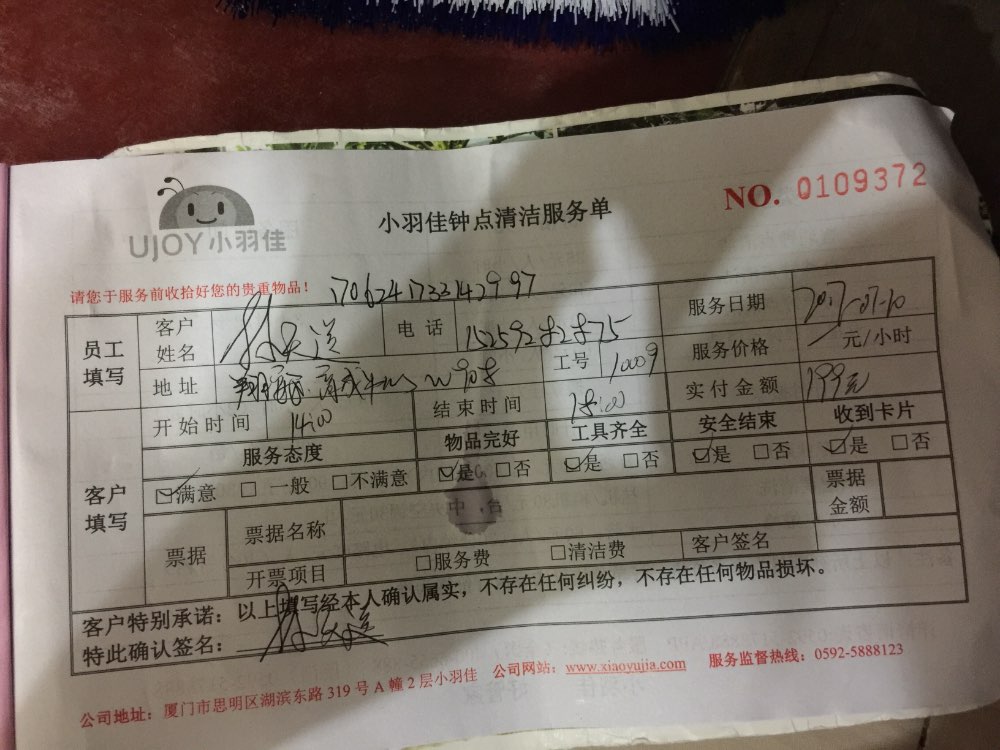 UJOY小羽佳
小羽佳钟点清洁服务单
NO. 0109372
请您于服务前收拾好您的贵重物品!
170624173314299 7
员工填写 客户姓名 电话 15259282875 服务日期 2017-07-10
地址 工号 10009 服务价格 元/小时
开始时间 14:00 结束时间 18:00 实付金额 199元
客户填写 服务态度 物品完好 工具齐全 安全结束 收到卡片
☑满意 □一般 □不满意 ☑是 □否 ☑是 □否 ☑是 □否 ☑是 □否
票据 票据名称 票据金额
开票项目 □服务费 □清洁费 客户签名
客户特别承诺:以上填写经本人确认属实,不存在任何纠纷,不存在任何物品损坏。
特此确认签名:
公司地址:厦门市思明区湖滨东路319号A幢2层小羽佳 公司网站:www.xiaoyujia.com 服务监督热线:0592-5888123